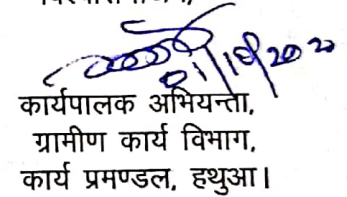 01/10/2020
कार्यपालक अभियन्ता,
ग्रामीण कार्य विभाग,
कार्य प्रमण्डल, हथुआ।